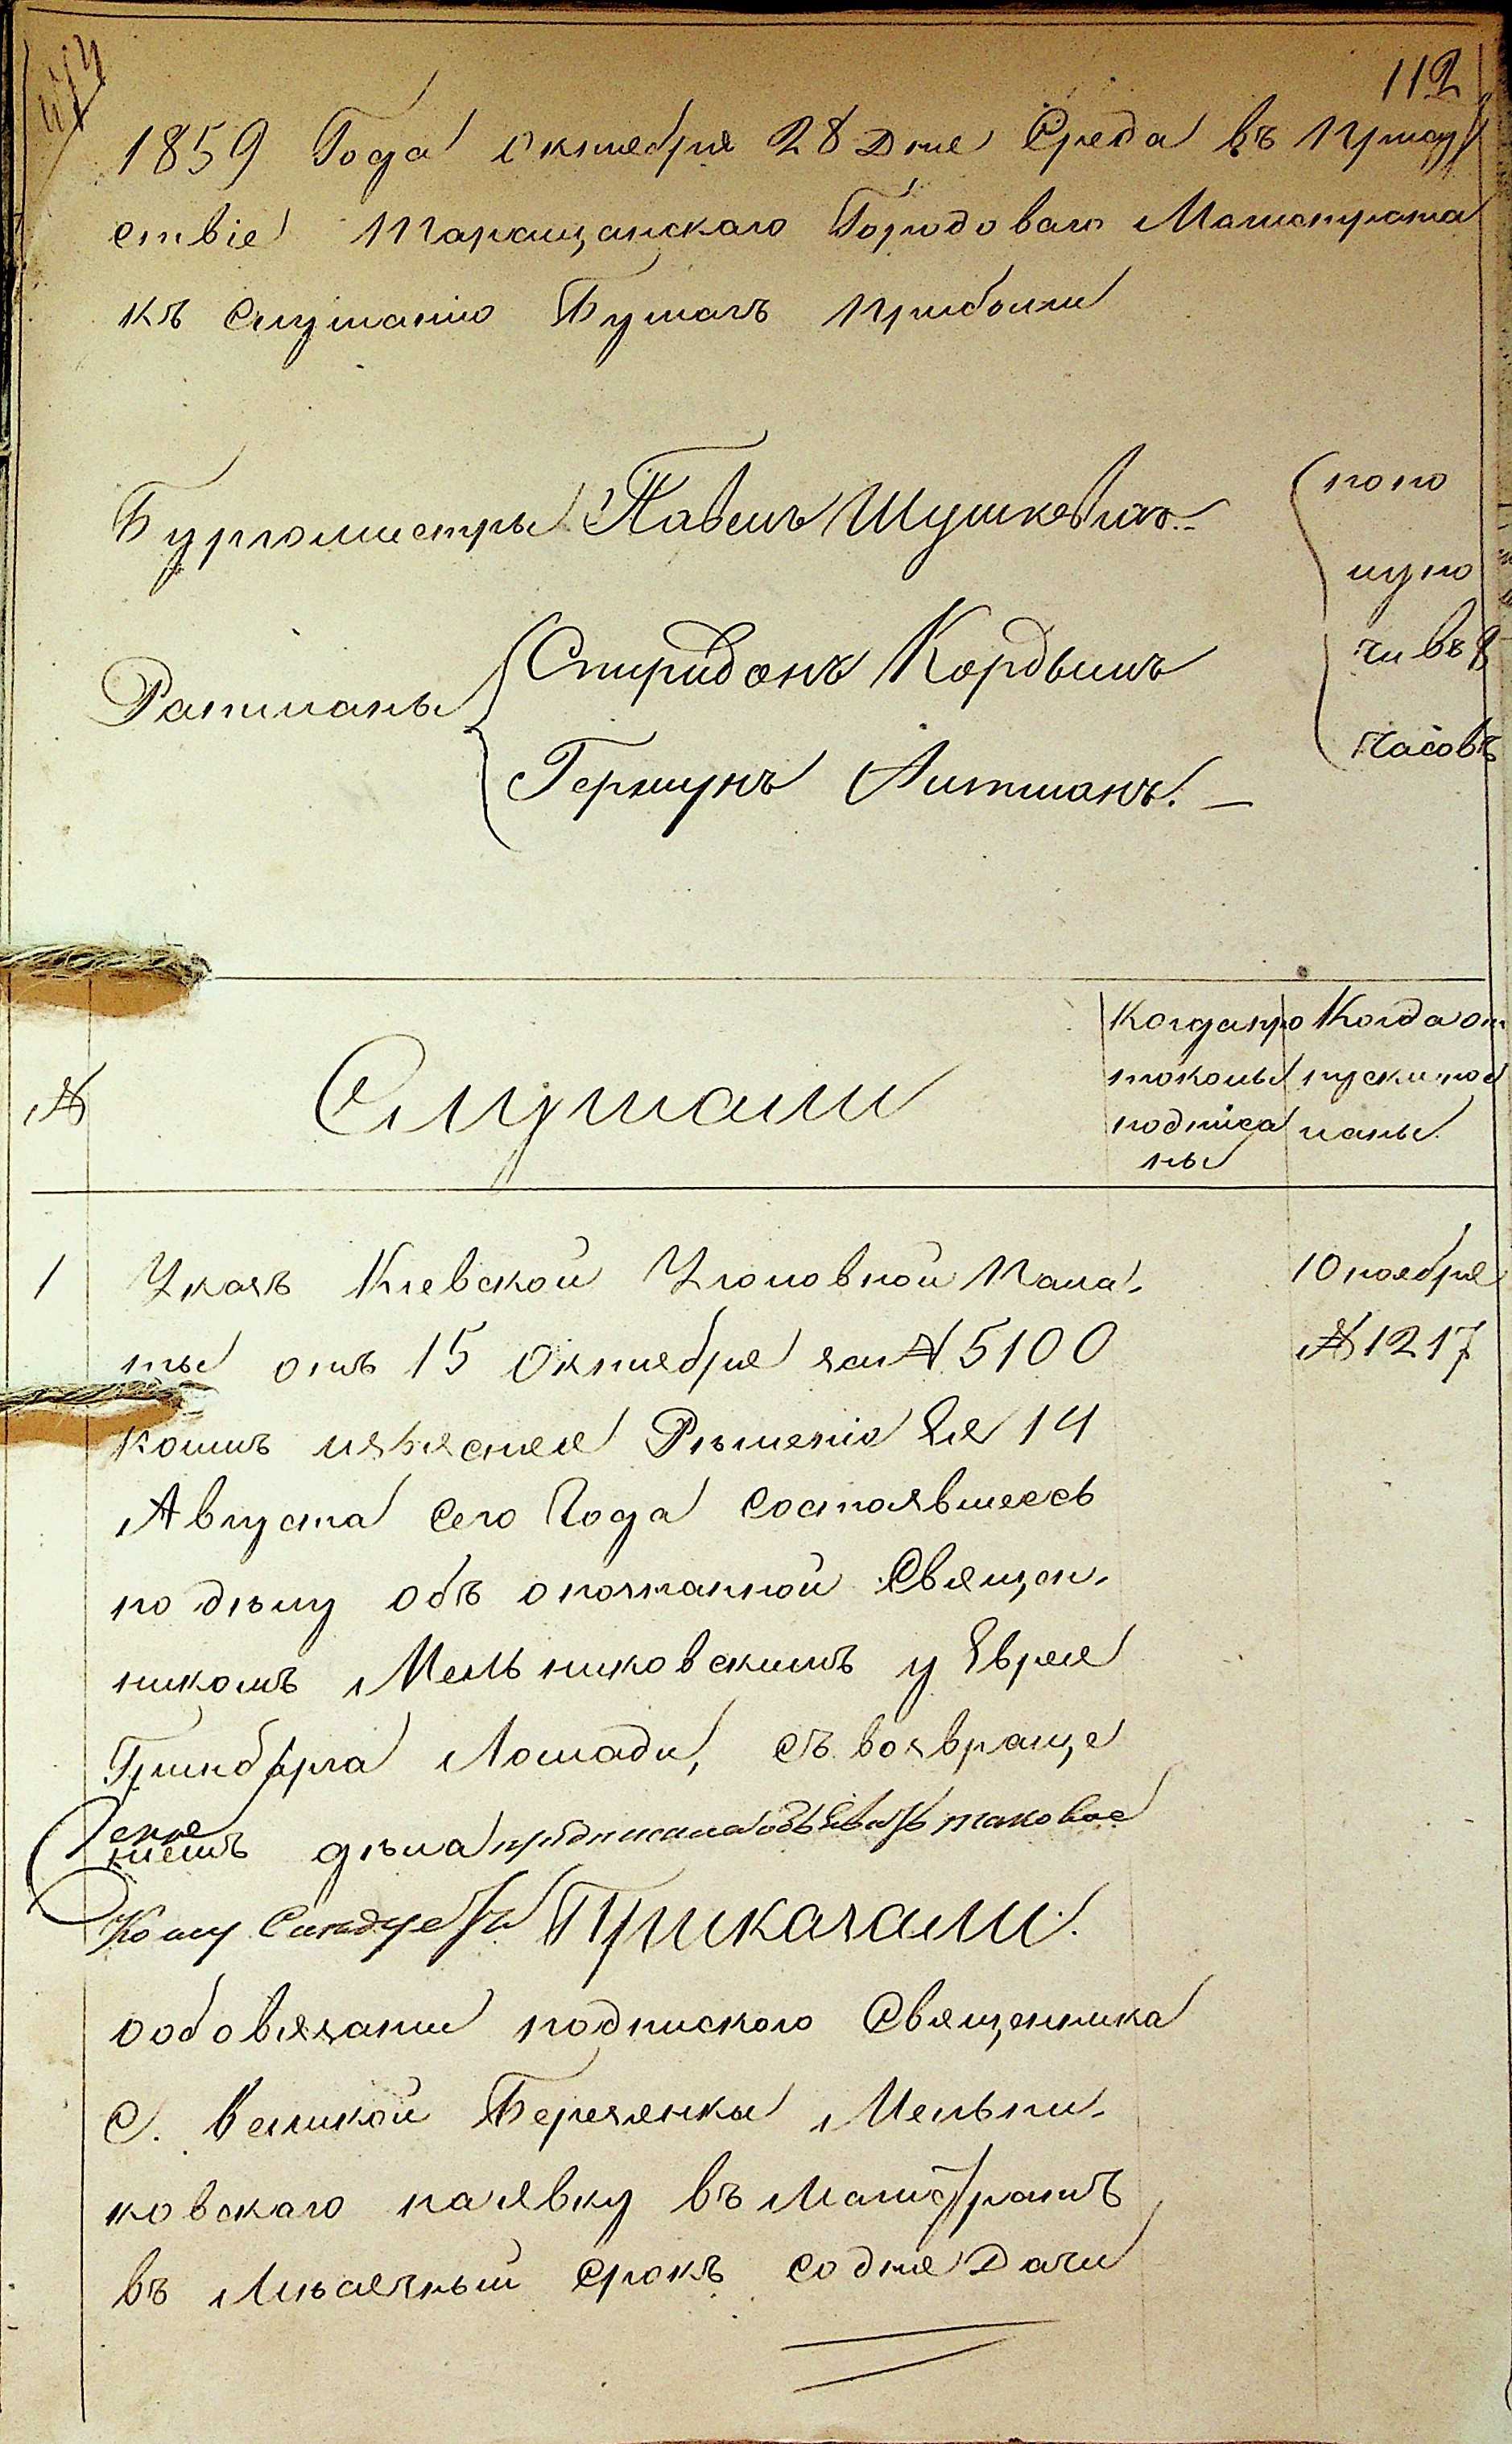 112
1859 Года Октября 28 Дня Среда въ Прису
ствіе Таращанскаго Городоваго Магистрата
къ Слушанію Бумагъ прибыли
Бургомистры Павелъ Шушкевичъ
Ратманы
Спиридонъ Кордышъ
Гершунъ Литманъ.
попо
луно
чи въ 8
часовъ
№
Слушали
Когда про
токолы
подписа
ны
Когда от
пуски под
саны
1
Указъ Кіевской Уголовной Пала-
ты отъ 15 Октября за № 5100
коимъ изъясняя Рѣшенія Ея 14
Августа сего Года состоявшееся
по дѣлу объ опознанной Священ-
никомъ Мельниковскимъ у Еврея
Гринберга Лошади, съ возвраще
ніемъ дѣла предписала объявить таковое
Кому Слѣдуетъ Приказали.
о обовязаніи подпискою Священника
С. Великой Березянки Мельни-
ковскаго на явку въ Магистратъ
въ Мѣсячный срокъ со дня Дачи
10 ноября
№ 1217